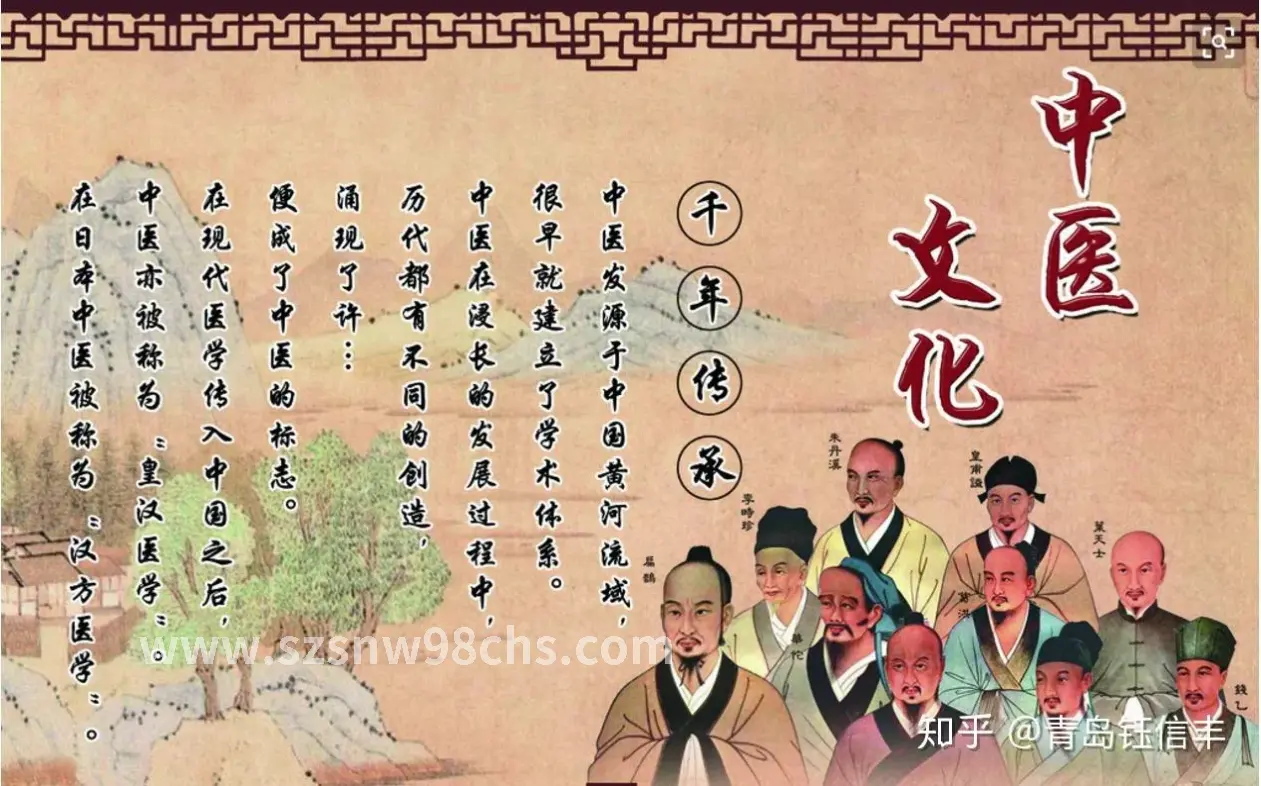 中医
文化
千年传承
中医发源于中国黄河流域，
很早就建立了学术体系。
中医在浸长的发展过程中，
历代都有不同的创造，
涌现了许…
便成了中医的标志。
在现代医学传入中国之后，
中医亦被称为“皇汉医学”。
在日本中医被称为“汉方医学”。
朱丹溪
皇甫謐
李時珍
葉天士
扁鵲
葛洪
華佗
錢乙
www.szsnw98chs.com
知乎 @青岛钰信丰